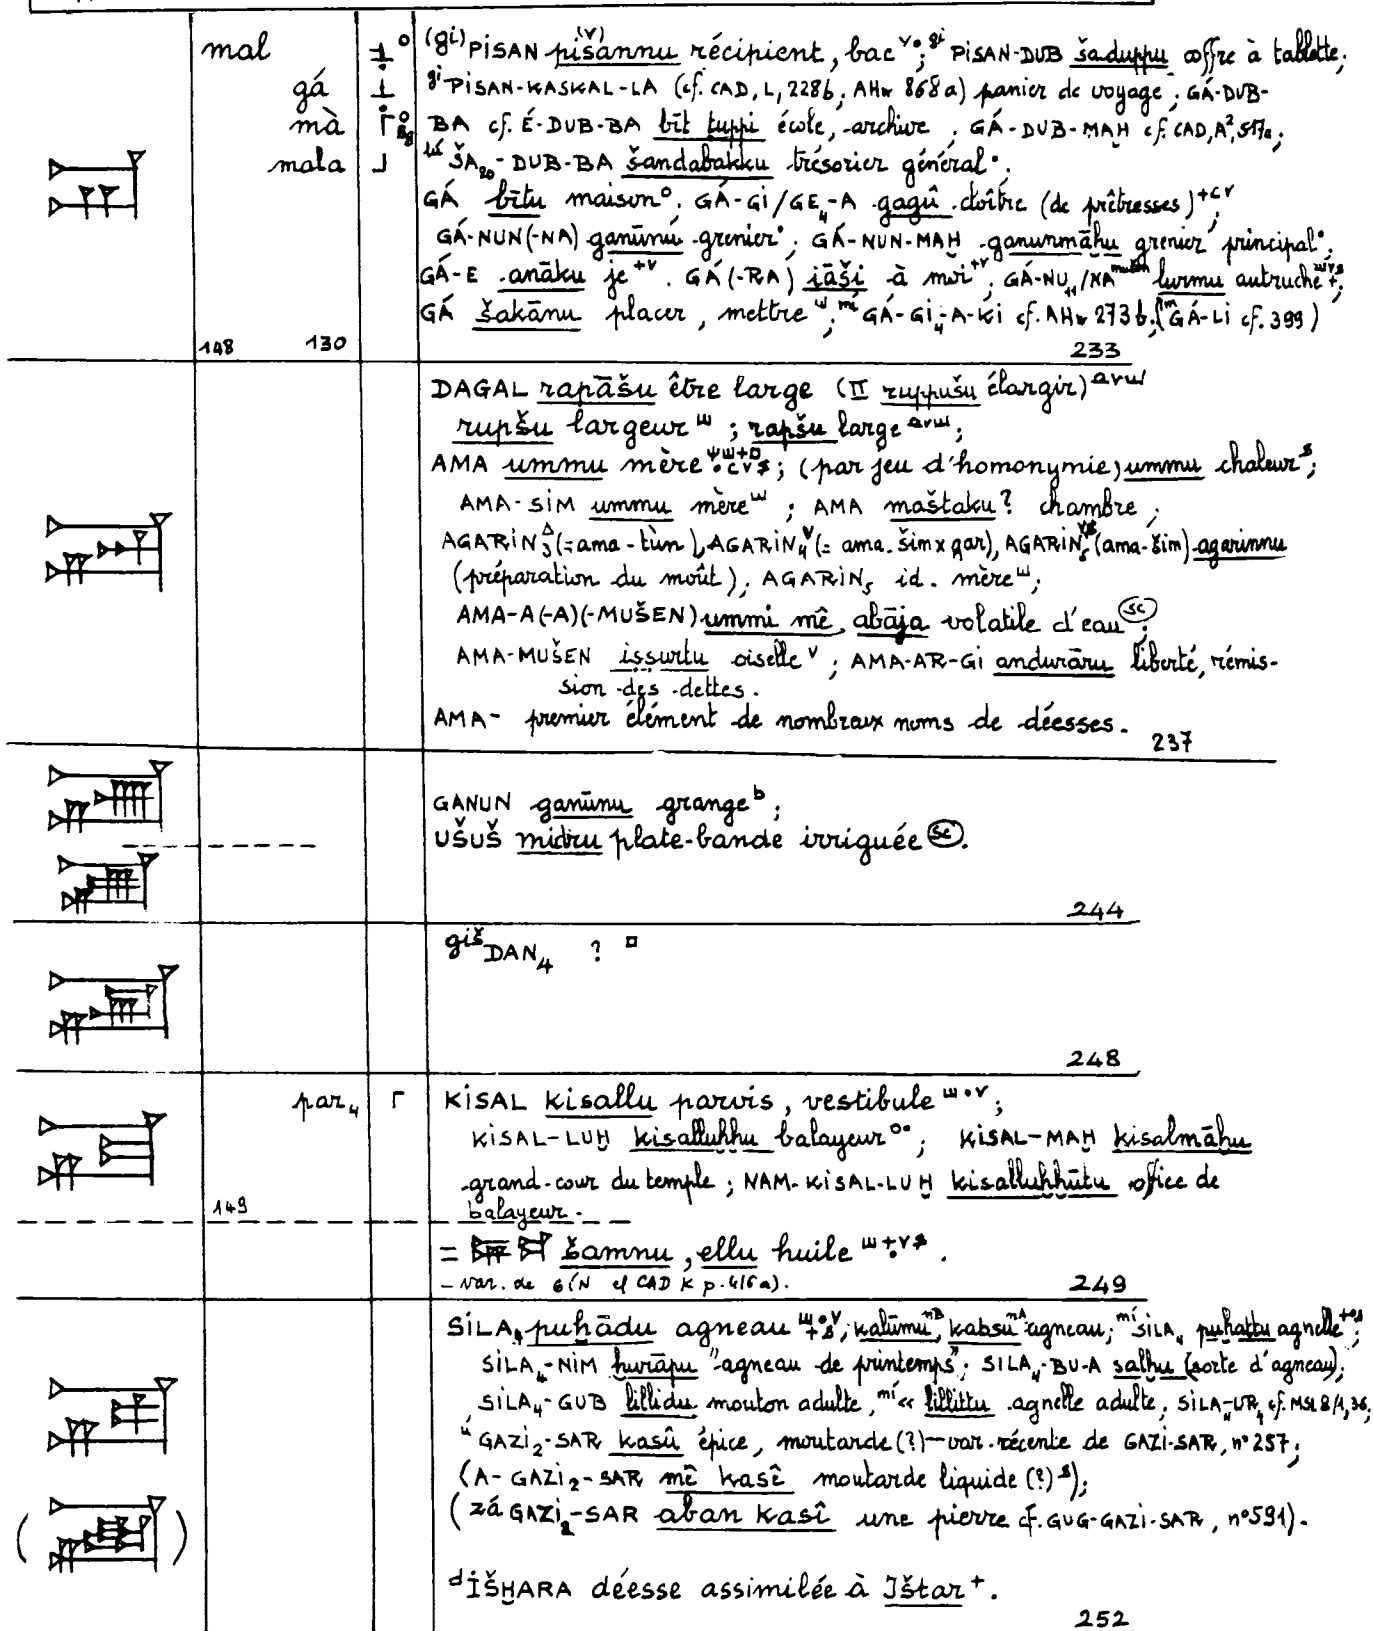 mal (gi)PISAN pisannu(v) récipient, bac v•; gi PISAN-DUB šaduppu coffre à tablette;
gá gi PISAN-KASKAL-LA (cf. CAD, L, 228b; AHw 868a) panier de voyage; GÁ-DUB-
mà BA cf. É-DUB-BA bīt ṭuppi école, archive; GÁ-DUB-MAḪ cf. CAD, A²,
mala lú ŠA₂₀-DUB-BA šandabakku trésorier général•.
GÁ bītu maison°. GÁ-GI/GE₄-A gagû cloître (de prêtresses)+cv;
GÁ-NUN(-NA) ganūnu grenier•; GÁ-NUN-MAḪ ganunmāḫu grenier principal•;
GÁ-E anāku je+v. GÁ(-RA) iāši à moi+v; GÁ-NU₁₁/NA mušen lurmu autruche;
GÁ šakānu placer, mettre w; mí GÁ-GI₄-A-KI cf. AHw 273b; (GÁ-LI cf. 399)
148 130 233
DAGAL rapāšu être large (II ruppušu élargir) avw
rupšu largeur w; rapšu large avw;
AMA ummu mère; (par jeu d'homonymie) ummu chaleur s;
AMA-SIM ummu mère w; AMA maštaku? chambre;
AGARIN₃(=ama-tùn), AGARIN₄(=ama.šimxgar), AGARIN₅(ama-šim) agarinnu
(préparation du moût); AGARIN₅ id. mère w;
AMA-A(-A)(-MUŠEN) ummi mê, abāja volatile d'eau (sc);
AMA-MUŠEN iṣṣurtu oiselle v; AMA-AR-GI andurāru liberté, rémis-
sion des dettes.
AMA- premier élément de nombreux noms de déesses.
237
GANUN ganūnu grange b;
UŠUŠ midru plate-bande irriguée (sc).
244
giš DAN₄ ? □
248
par₄ KISAL kisallu parvis, vestibule w•v;
KISAL-LUḪ kisalluḫḫu balayeur°•; KISAL-MAḪ kisalmāḫu
grand-cour du temple; NAM-KISAL-LUḪ kisalluḫḫūtu office de
149 balayeur.
= šamnu, ellu huile.
- var. de cf CAD K p. 416a). 249
SILA₄ puḫādu agneau; kalūmu nB, kabsu nA agneau; mí SILA₄ puḫattu agnelle;
SILA₄-NIM ḫurāpu "agneau de printemps"; SILA₄-BU-A salḫu (sorte d'agneau);
SILA₄-GUB lillidu mouton adulte, mí « lillittu agnelle adulte; SILA₄-UR₄ cf. MSL 8/1, 36;
ú GAZI₂-SAR kasû épice, moutarde (?) — var. récente de GAZI-SAR, n° 257;
(A-GAZI₂-SAR mê kasê moutarde liquide (?) s);
(zá GAZI₂-SAR aban kasî une pierre cf. GUG-GAZI-SAR, n° 591).
d IŠḪARA déesse assimilée à Ištar+.
252